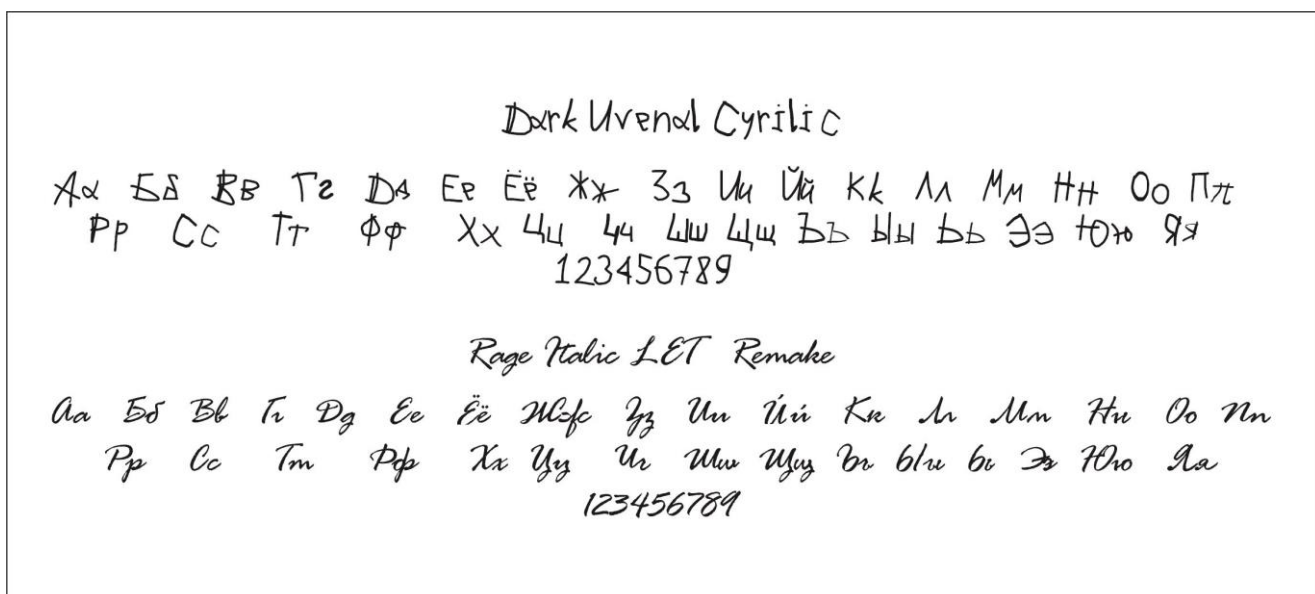 Dark Uvenal Cyrilic
Аа Бб Вв Гг Дд Ее Ёё Жж Зз Ии Йй Кк Лл Мм Нн Оо Пп
Рр Сс Тт Фф Хх Цц Чч Шш Щщ Ъъ Ыы Ьь Ээ Юю Яя
123456789
Rage Italic LET Remake
Аа Бб Вв Гг Дд Ее Ёё Жж Зз Ии Йй Кк Лл Мм Нн Оо Пп
Рр Сс Тт Фф Хх Цц Чч Шш Щщ Ъъ Ыы Ьь Ээ Юю Яя
123456789